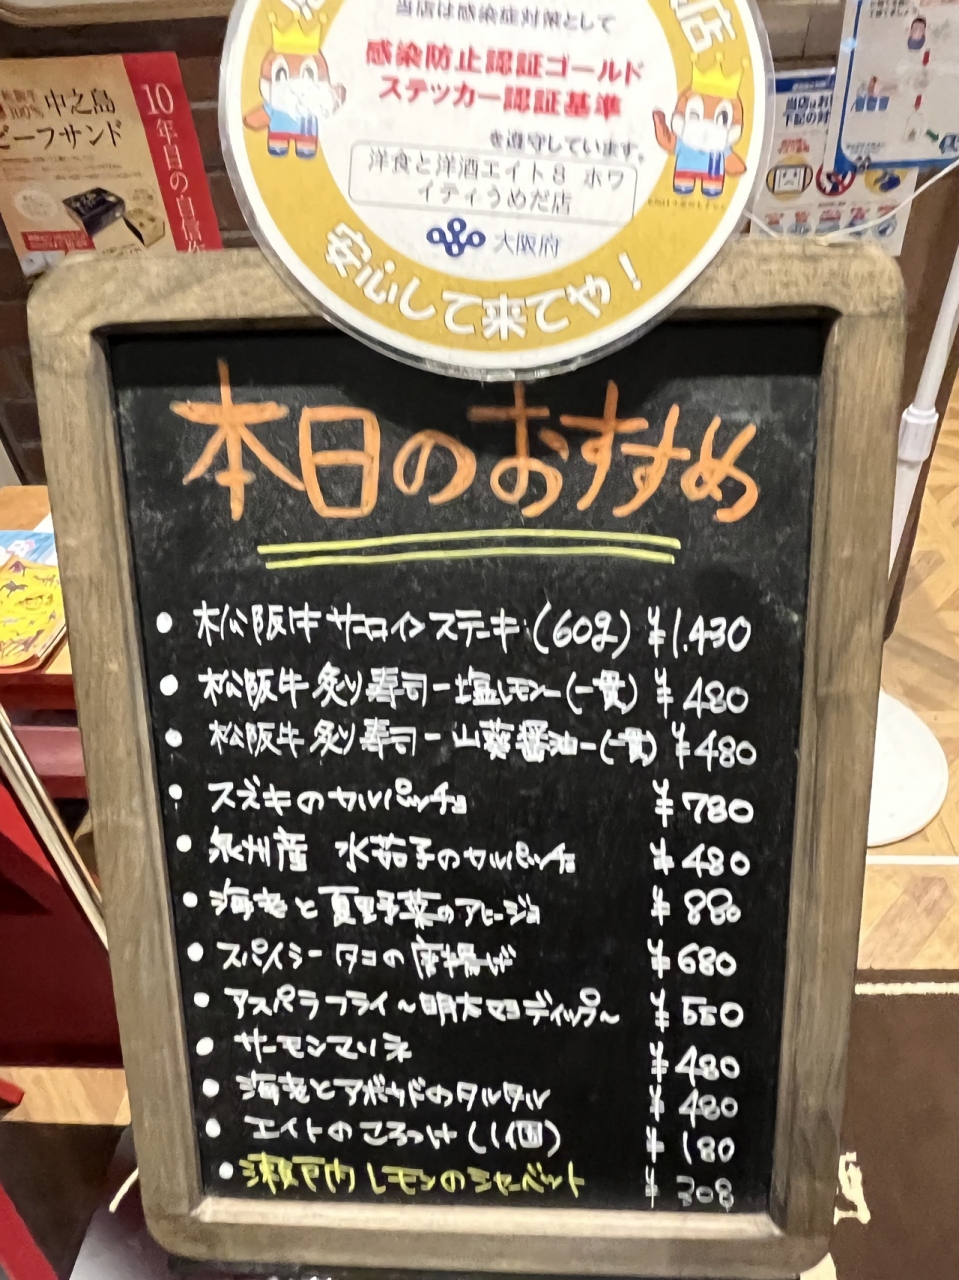 当店は感染症対策として
感染防止認証ゴールド
ステッカー認証基準
を遵守しています。
洋食と洋酒エイト8 ホワ
イティうめだ店
大阪府
安心して来てや!
店
中之島
ビーフサンド
100%
10年目の自信作
当店はお
下記の対
本日のおすすめ
• 松阪牛サーロインステーキ(60g) ¥1.430
• 松阪牛炙り寿司ー塩レモンー(一貫) ¥480
• 松阪牛炙り寿司ー山葵醤油ー(一貫) ¥480
• スズキのカルパッチョ ¥780
• 泉州産 水茄子のカルパッチョ ¥480
• 海老と夏野菜のアヒージョ ¥880
• スパイシータコの唐揚げ ¥680
• アスパラフライ〜明太マヨディップ〜 ¥550
• サーモンマリネ ¥480
• 海老とアボカドのタルタル ¥480
• エイトのころっけ(1個) ¥180
• 瀬戸内レモンのシャーベット ¥308